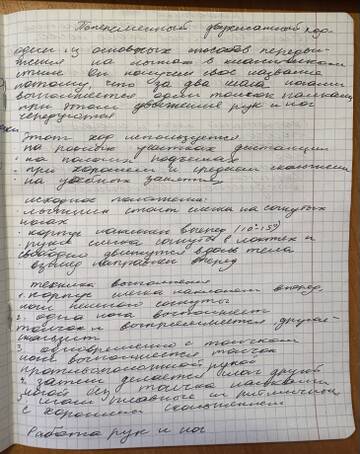 Попеременный двухшажный ход-
один из основных способов передви-
жения на лыжах в классическом
стиле. Он получил своё название
потому, что за два шага лыжник
выполняется один толчок палками
при этом движения рук и ног
чередуются
Этот ход используется
на ровных участках дистанции
на пологих подъемах
при хорошем и среднем скольжении
на учебных занятиях
Исходное положение:
лыжник стоит слегка на согнутых
ногах
корпус наклонен вперед (10-15°)
руки слегка согнуты в локтях и
свободно двигаются вдоль тела
взгляд направлен вперед
техника выполнения
1. корпус слегка наклонен вперед,
ноги немного согнуты
2. одна нога выполняет
толчок и выпрямляется другая
скользит
3. одновременно с толчком
ноги выполняется толчок
противоположной рукой
4. затем делается шаг другой
ногой
5. шаги плавные и ритмичные
с хорошим скольжением
Работа рук и ног